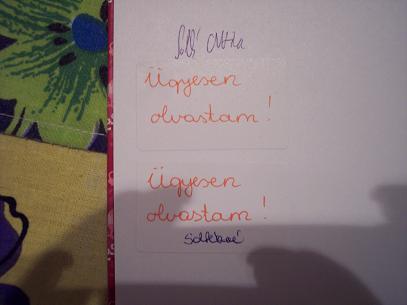 Ügyesen
olvastam!
Ügyesen
olvastam!